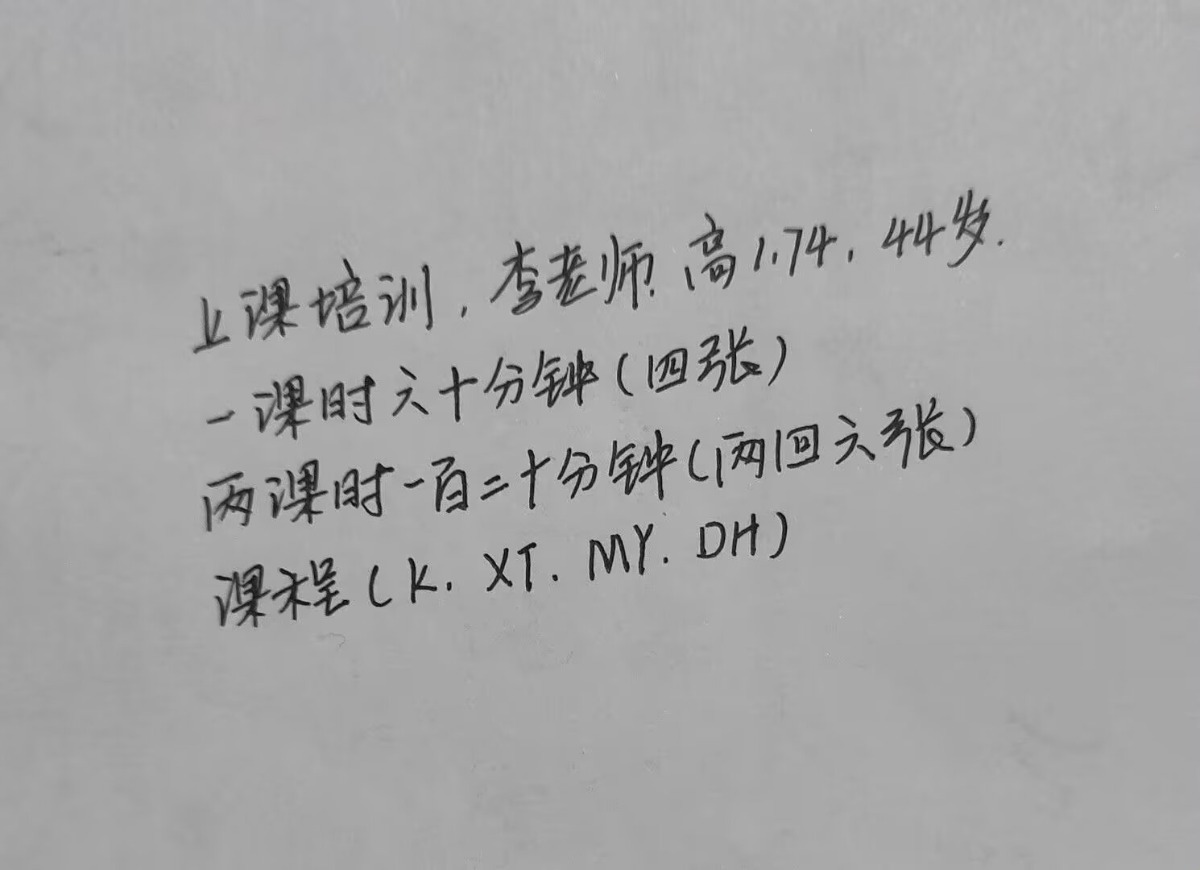 上课培训，李老师，高1.74，44岁.
一课时六十分钟(四张)
两课时一百二十分钟(两回六张)
课程(K. XT. MY. DH)